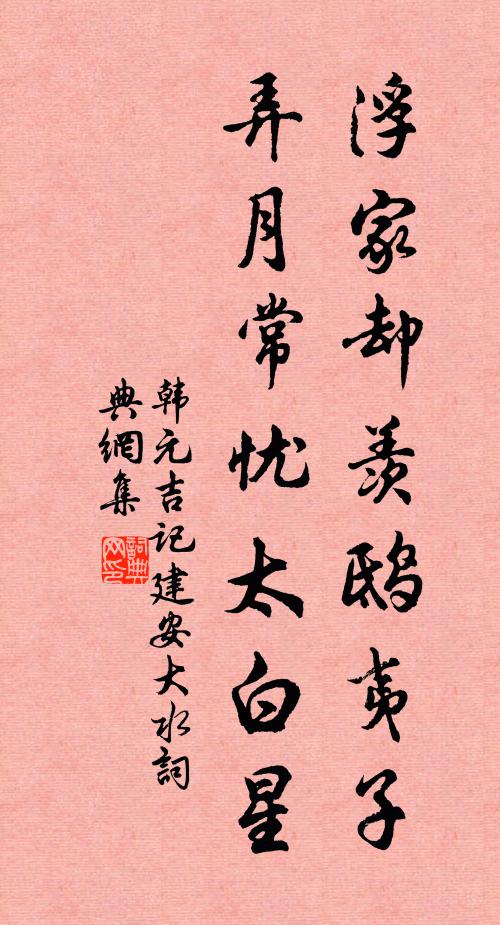 浮家却羡鸱夷子
弄月常忧太白星
韩元吉记建安大水詞
典網集
詞典網印